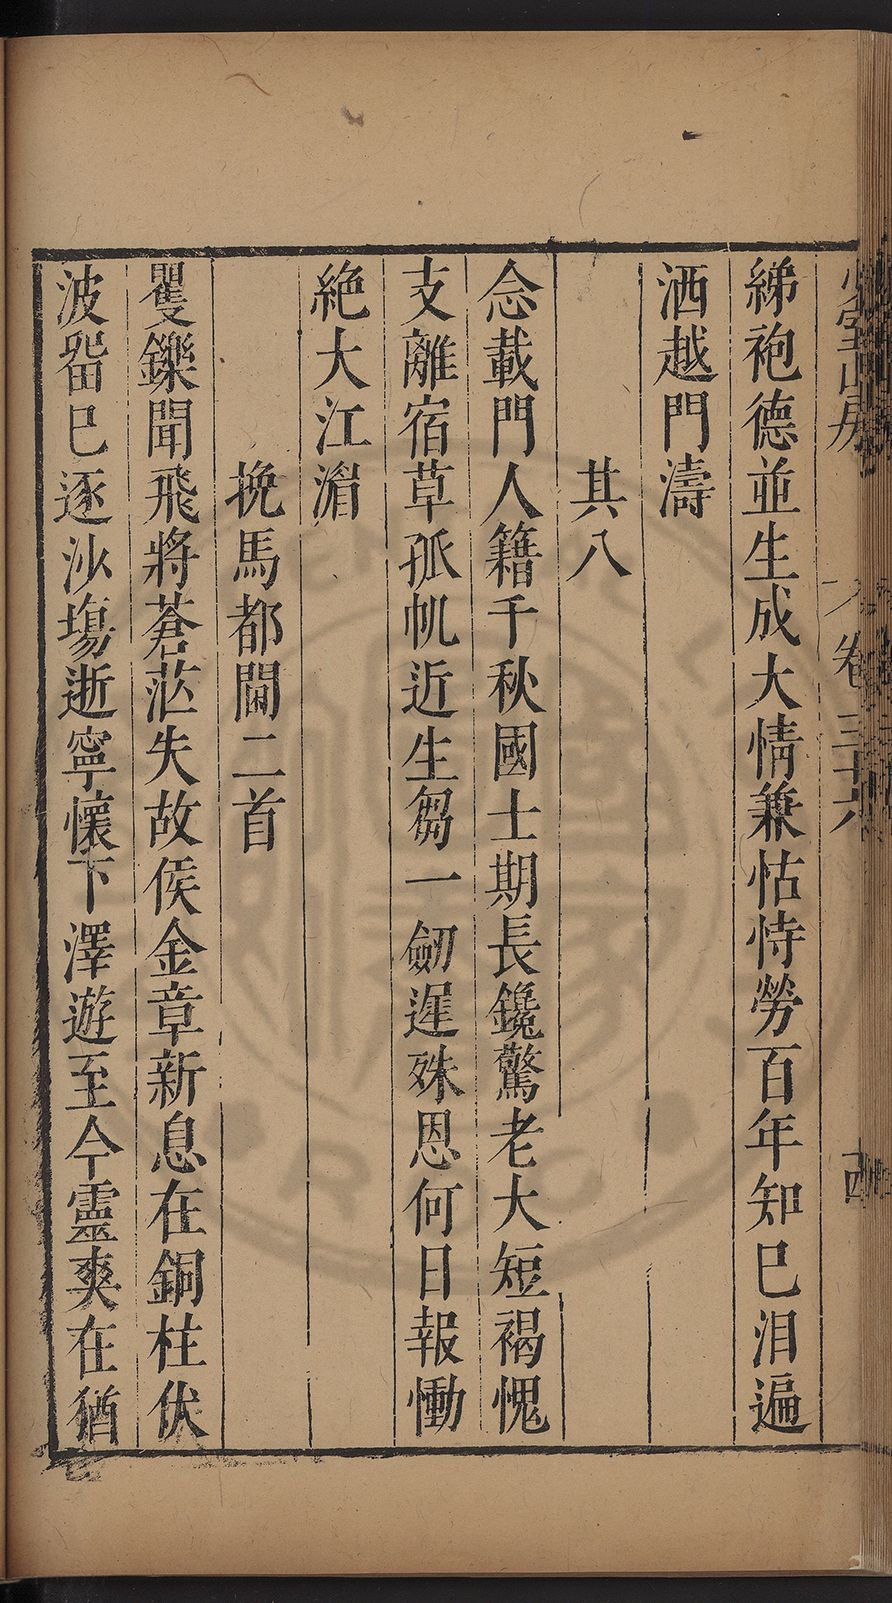 綈袍德並生成大情兼怙恃勞百年知巳泪遍
洒越門濤
其八
念載門人籍千秋國士期長鑱驚老大短褐愧
支離宿草孤帆近生芻一劒遲殊恩何日報慟
絶大江湄
挽馬都閫二首
矍鑠聞飛將蒼茫失故侯金章新息在銅柱伏
波畱巳逐沙塲逝寧懷下澤遊至今靈爽在猶
卷三十六